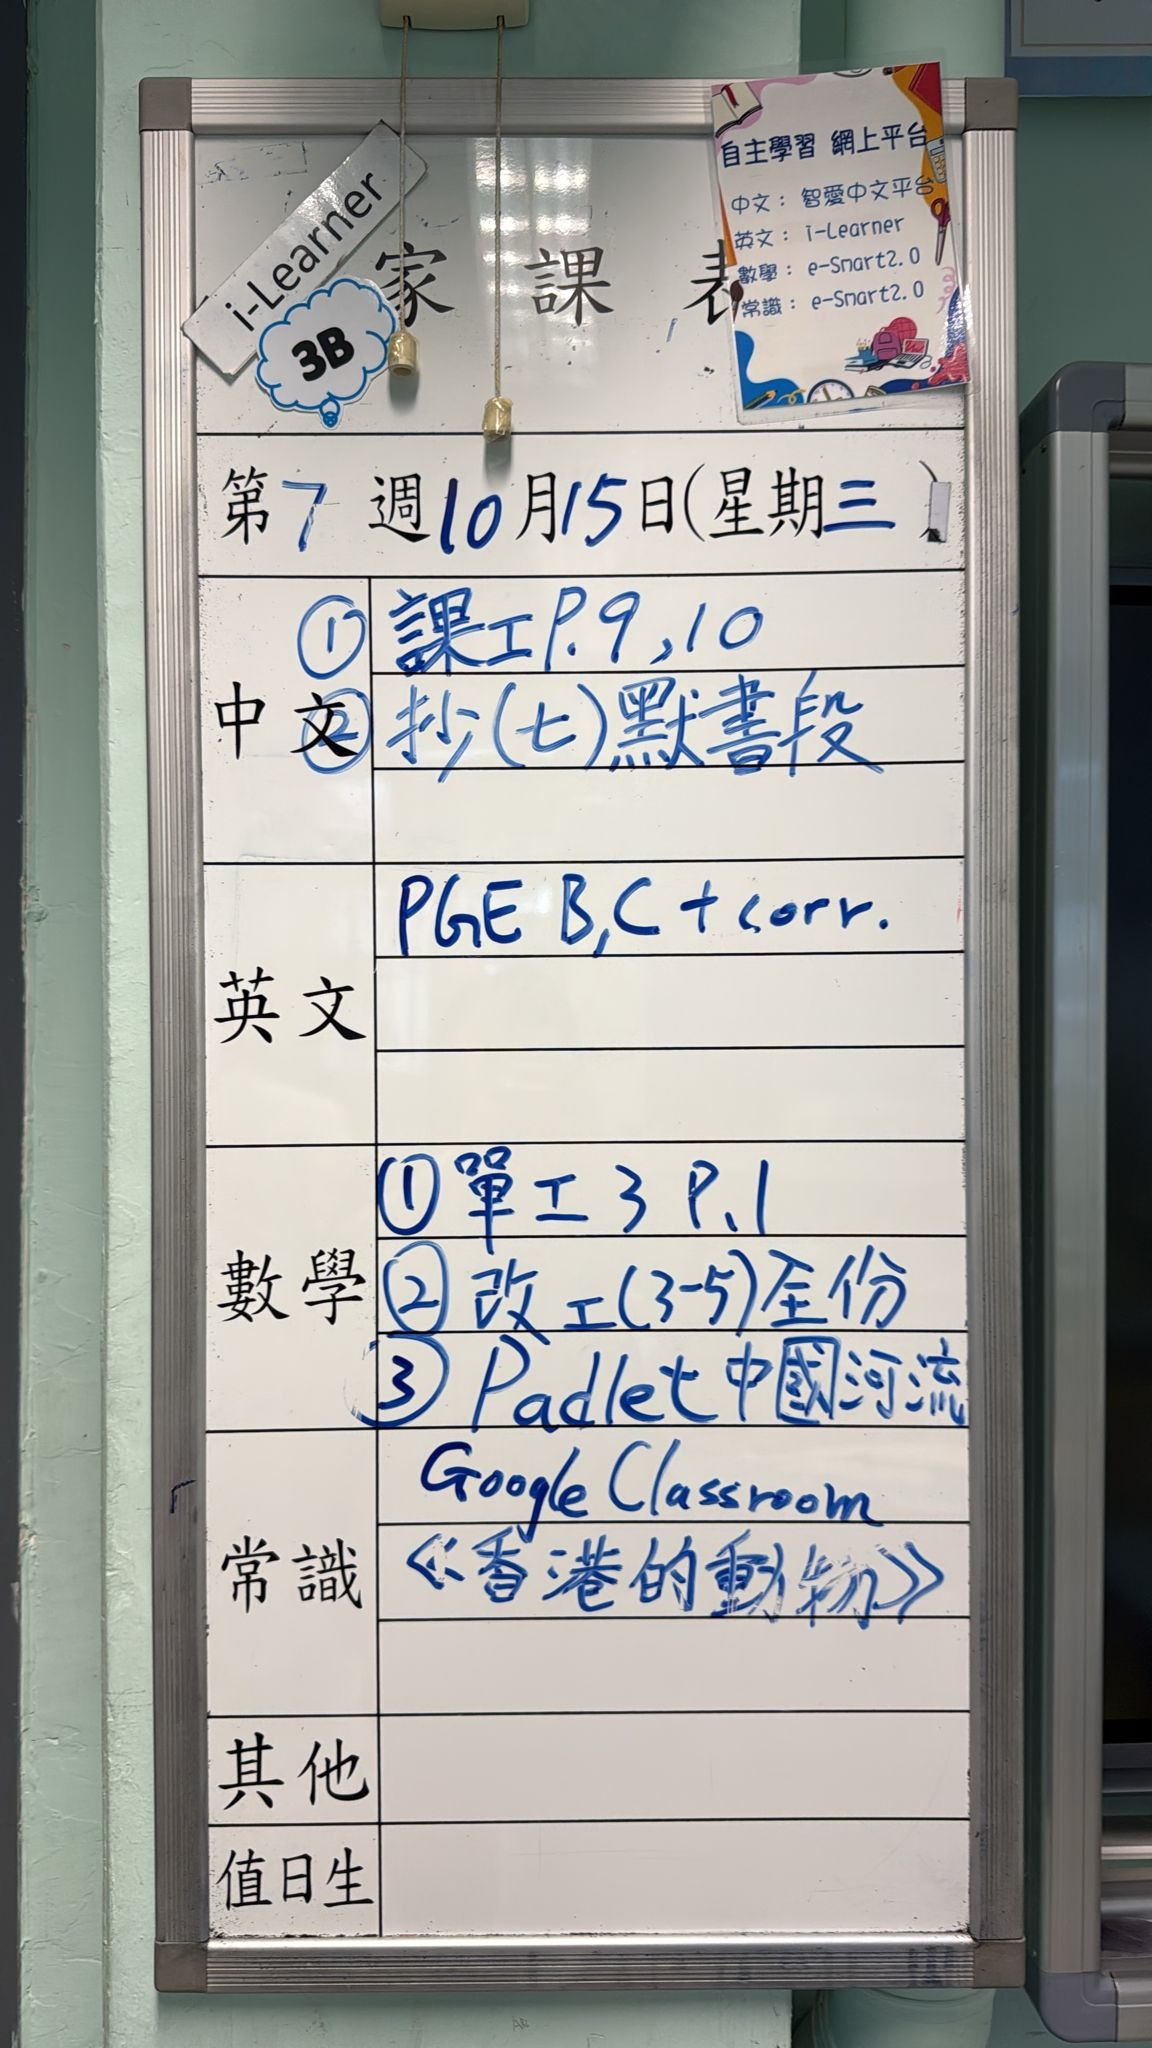 i-Learner
3B
家 課 表
自主學習 網上平台
中文： 智愛中文平台
英文： i-Learner
數學： e-Smart2.0
常識： e-Smart2.0
第7週10月15日(星期三)
中文
① 課工P.9,10
② 抄(七)默書段
英文
PGE B,C + corr.
數學
① 單工3 P.1
② 改工(3-5)全份
③ Padlet中國河流
常識
Google Classroom
《香港的動物》
其他
值日生